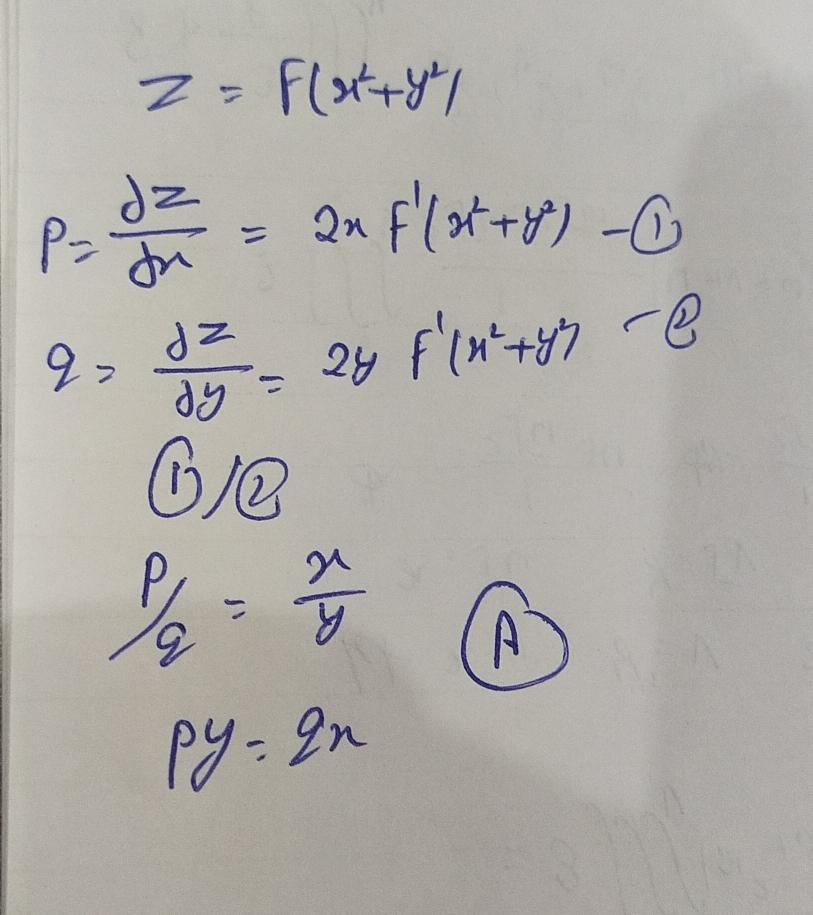 z = F(x²+y²)
p = ∂z/∂x = 2x F'(x²+y²) -①
q = ∂z/∂y = 2y F'(x²+y²) -②
①/②
p/q = x/y Ⓐ
py = qx